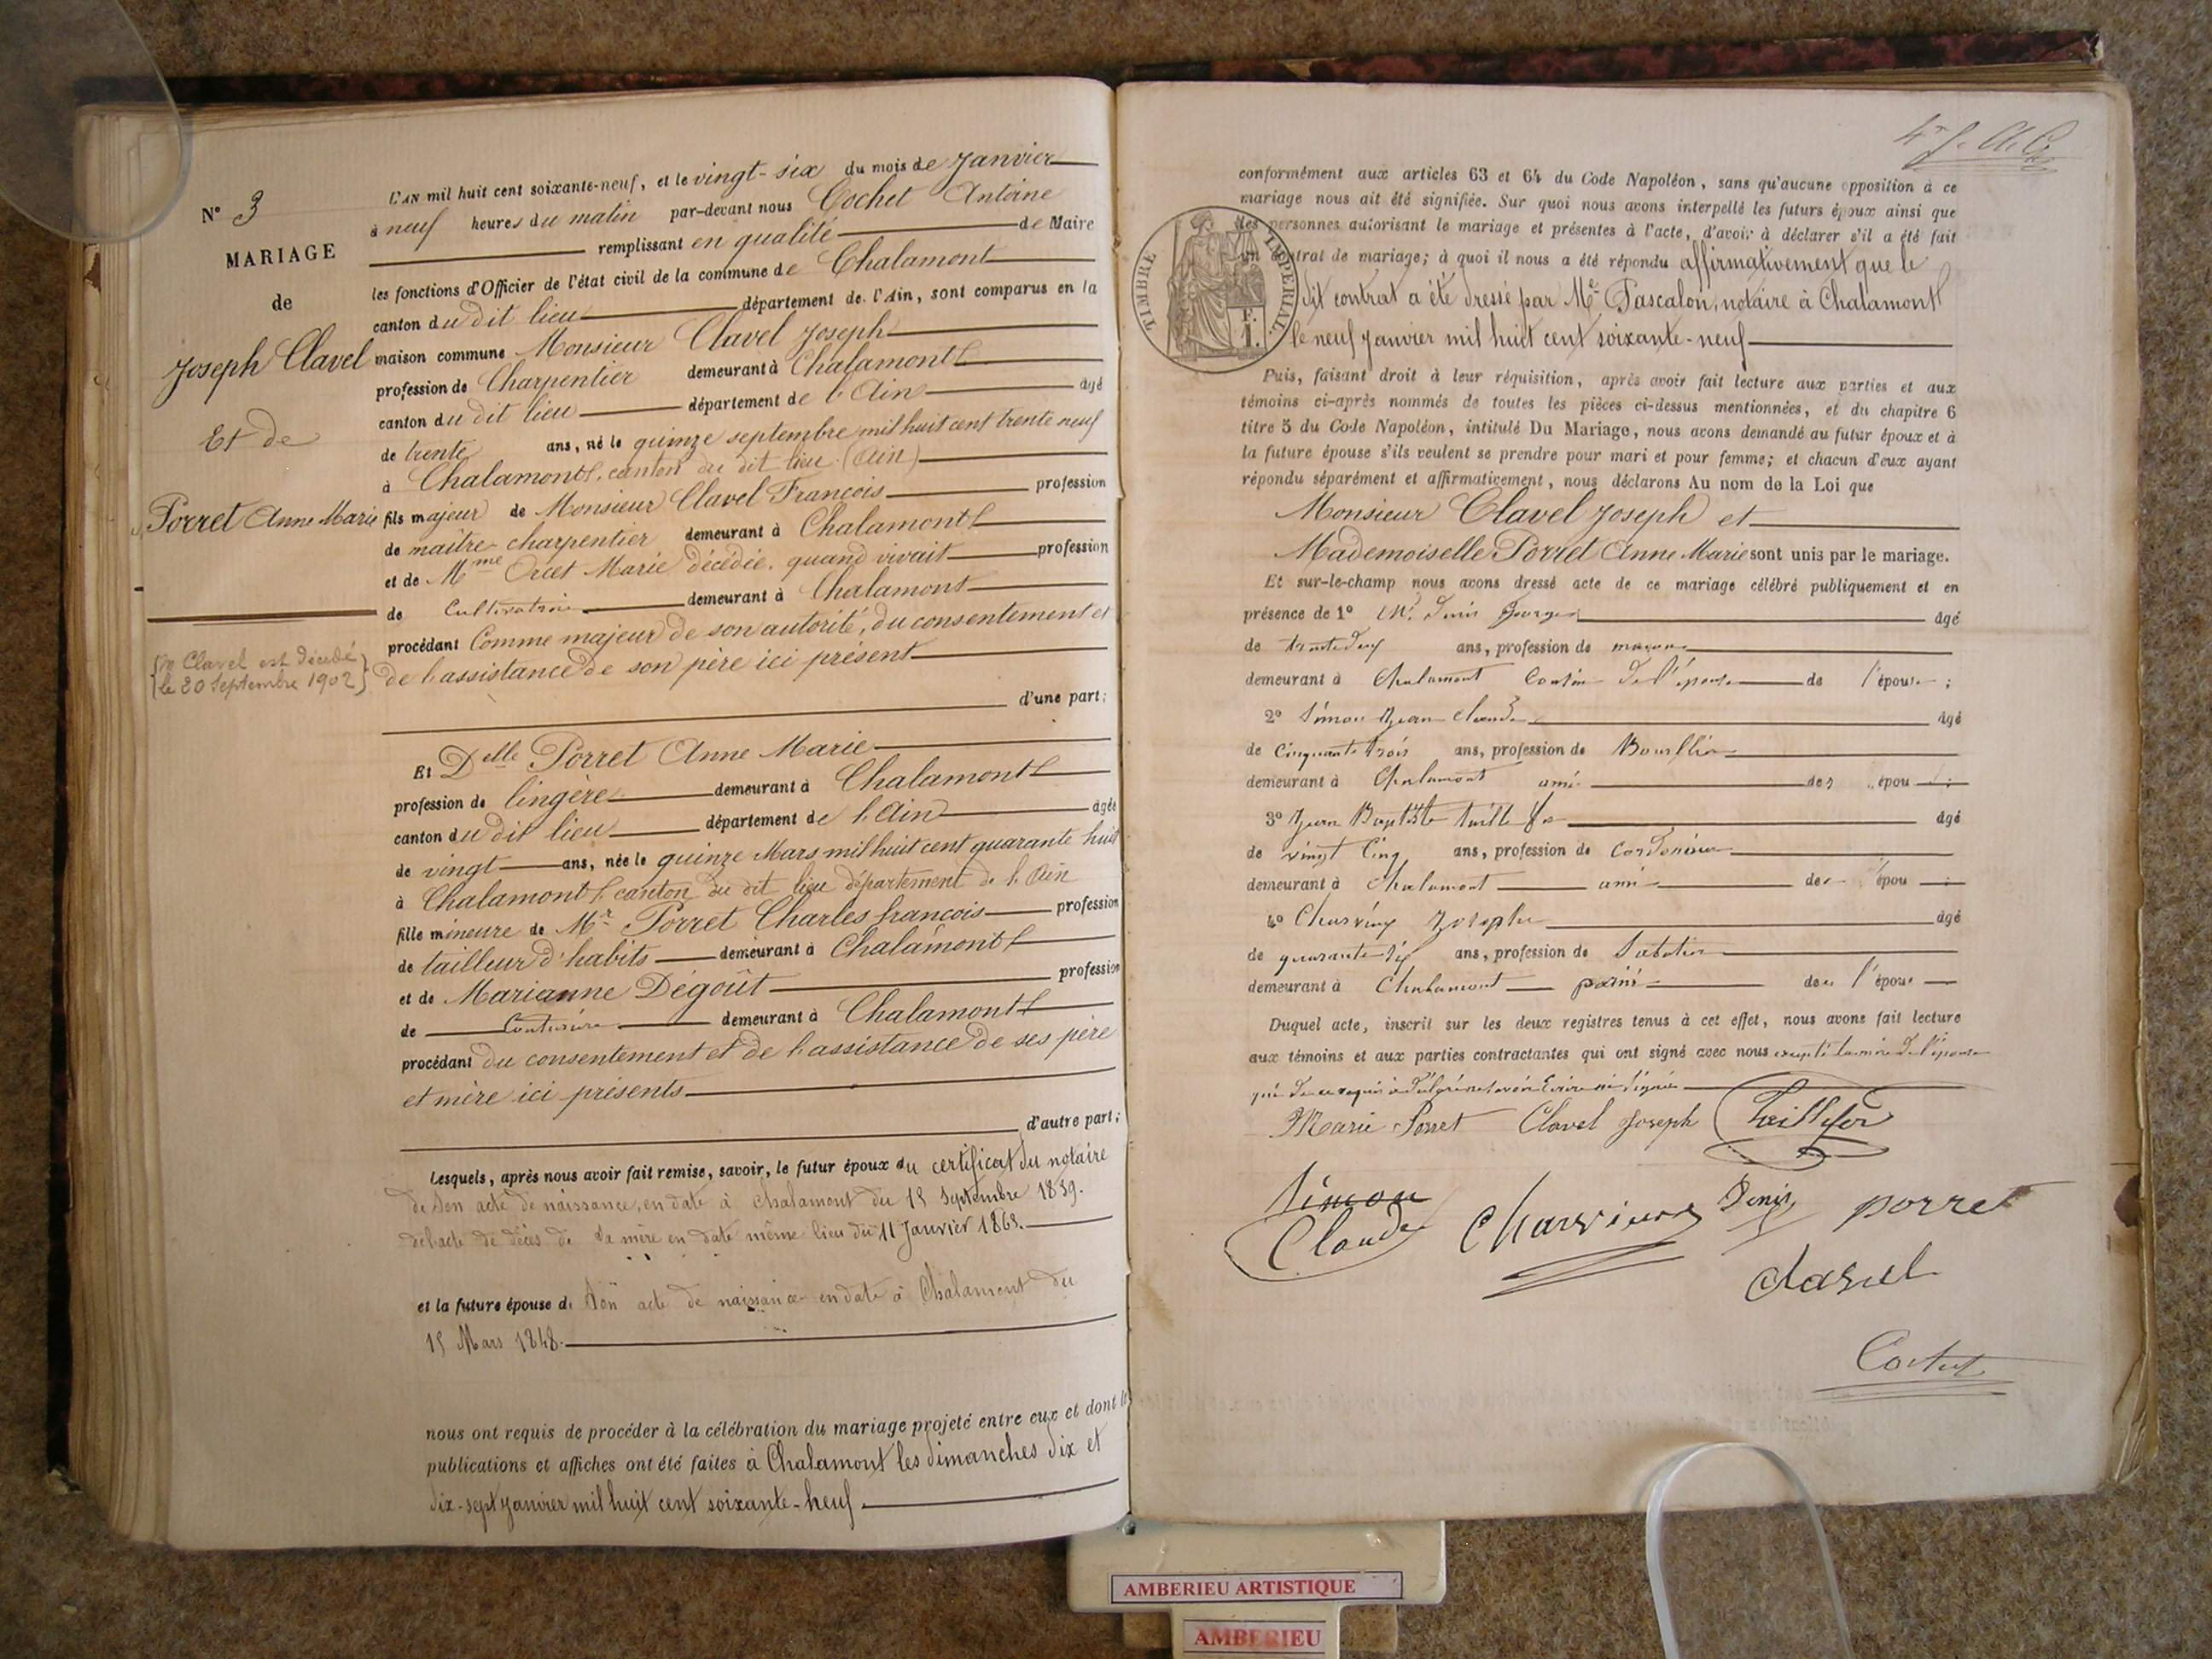 N° 3
MARIAGE
de
Joseph Clavel
Et de
Porret Anne Marie
Mr Clavel est décédé
le 20 Septembre 1902
L'AN mil huit cent soixante-neuf, et le vingt-six du mois de Janvier
à neuf heures du matin par-devant nous Cochet Antoine
remplissant en qualité de Maire
les fonctions d'Officier de l'état civil de la commune de Chalamont
canton du dit lieu département de l'Ain, sont comparus en la
maison commune Monsieur Clavel Joseph
profession de Charpentier demeurant à Chalamont
canton du dit lieu département de l'Ain âgé
de trente ans, né le quinze septembre mil huit cent trente neuf
à Chalamont, canton du dit lieu (Ain)
fils majeur de Monsieur Clavel François profession
de maître charpentier demeurant à Chalamont
et de Mme Orcet Marie décédée, quand vivait profession
de Cultivatrice demeurant à Chalamont
procédant Comme majeur de son autorité, du consentement et
de l'assistance de son père ici présent
d'une part;
Et Delle Porret Anne Marie
profession de lingère demeurant à Chalamont
canton du dit lieu département de l'Ain âgée
de vingt ans, née le quinze Mars mil huit cent quarante huit
à Chalamont, canton du dit lieu département de l'Ain
fille mineure de Mr Porret Charles françois profession
de tailleur d'habits demeurant à Chalamont
et de Marianne Dégoût profession
de Couturière demeurant à Chalamont
procédant du consentement et de l'assistance de ses père
et mère ici présents
d'autre part;
Lesquels, après nous avoir fait remise, savoir, le futur époux du certificat du notaire
de son acte de naissance, en date à Chalamont du 15 Septembre 1839.
de l'acte de décès de sa mère en date même lieu du 11 Janvier 1865.
et la future épouse de son acte de naissance en date à Chalamont du
15 Mars 1848.
nous ont requis de procéder à la célébration du mariage projeté entre eux et dont les
publications et affiches ont été faites à Chalamont les dimanches dix et
dix-sept janvier mil huit cent soixante-neuf
conformément aux articles 63 et 64 du Code Napoléon, sans qu'aucune opposition à ce
mariage nous ait été signifiée. Sur quoi nous avons interpellé les futurs époux ainsi que
des personnes autorisant le mariage et présentes à l'acte, d'avoir à déclarer s'il a été fait
un contrat de mariage; à quoi il nous a été répondu affirmativement que le
dit contrat a été dressé par Me Pascalon, notaire à Chalamont
le neuf janvier mil huit cent soixante-neuf
TIMBRE IMPÉRIAL
F. 1.
Puis, faisant droit à leur réquisition, après avoir fait lecture aux parties et aux
témoins ci-après nommés de toutes les pièces ci-dessus mentionnées, et du chapitre 6
titre 5 du Code Napoléon, intitulé Du Mariage, nous avons demandé au futur époux et à
la future épouse s'ils veulent se prendre pour mari et pour femme; et chacun d'eux ayant
répondu séparément et affirmativement, nous déclarons Au nom de la Loi que
Monsieur Clavel Joseph et
Mademoiselle Porret Anne Marie sont unis par le mariage.
Et sur-le-champ nous avons dressé acte de ce mariage célébré publiquement et en
présence de 1° Mr Denis Georges âgé
de ans, profession de maçon
demeurant à Chalamont Cousin de l'épouse de l'épouse;
2° Simon Jean Claude âgé
de Cinquante trois ans, profession de Bourllier
demeurant à Chalamont ami des épou
3° Jean Baptiste Taillefer âgé
de vingt Cinq ans, profession de Cordonnier
demeurant à Chalamont ami des épou
4° Charvieux Joseph âgé
de quarante six ans, profession de Sabotier
demeurant à Chalamont de l'épou
Duquel acte, inscrit sur les deux registres tenus à cet effet, nous avons fait lecture
aux témoins et aux parties contractantes qui ont signé avec nous excepté la mère de l'épouse
qui de ce requise a déclaré ne savoir Ecrire ni signer
Marie Porret Clavel Joseph Taillefer
Simon
Claude Charvieux Denis porret
Clavel
Cochet
AMBERIEU ARTISTIQUE
AMBERIEU